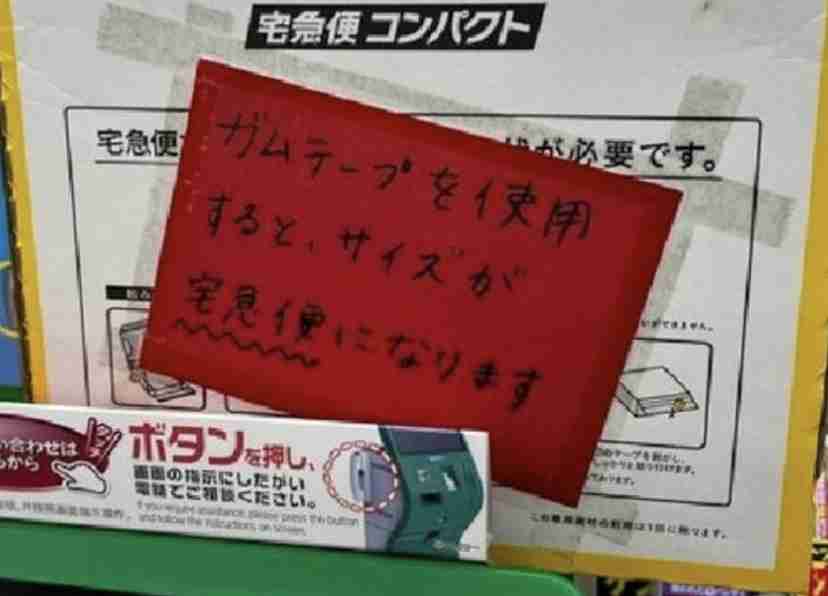 宅急便コンパクト
宅急便
が必要です。
ガムテープを使用
すると、サイズが
宅急便になります
ができません。
い合わせは
から
ボタンを押し、
画面の指示にしたがい
電話でご相談ください。
If you require assistance, please press the button
and follow the instructions on screen.